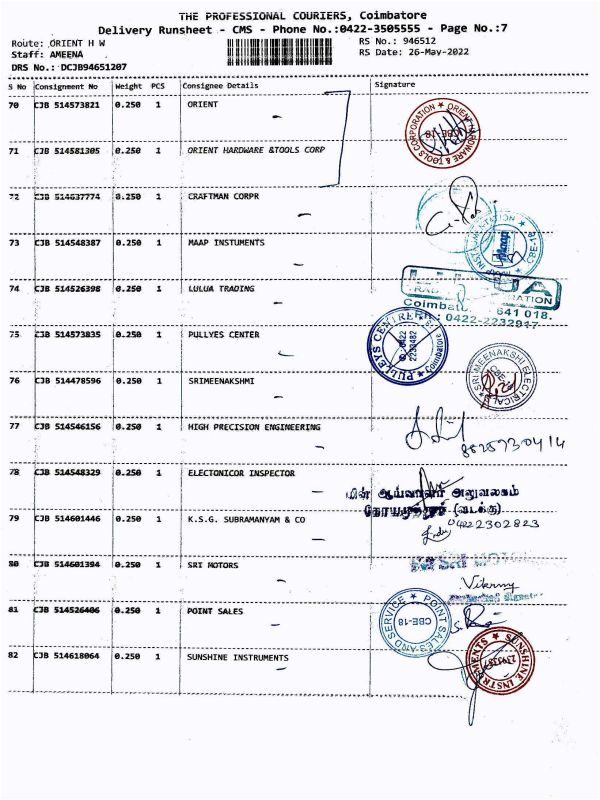 THE PROFESSIONAL COURIERS, Coimbatore
Delivery Runsheet - CMS - Phone No.:0422-3505555 - Page No.:7
Route: ORIENT H W RS No.: 946512
Staff: AMEENA RS Date: 26-May-2022
DRS No.: DCJB94651207
S No Consignment No Weight PCS Consignee Details Signature
70 CJB 514573821 0.250 1 ORIENT
ORIENT HARDWARE & TOOLS CORPORATION CBE-18
71 CJB 514581305 0.250 1 ORIENT HARDWARE &TOOLS CORP
72 CJB 514637774 0.250 1 CRAFTMAN CORPR
73 CJB 514548387 0.250 1 MAAP INSTUMENTS
Maap INSTRUMENTATION CBE-18
74 CJB 514526398 0.250 1 LULUA TRADING
641 018.
: 0422-2232917
75 CJB 514573835 0.250 1 PULLYES CENTER
PULLEYS CENTRE Coimbatore 0422 2233482
76 CJB 514478596 0.250 1 SRIMEENAKSHMI
SRI MEENAKSHI ELECTRICALS
77 CJB 514546156 0.250 1 HIGH PRECISION ENGINEERING
8825730414
78 CJB 514548329 0.250 1 ELECTONICOR INSPECTOR
மின் ஆய்வாளர் அலுவலகம்
(வடக்கு)
79 CJB 514601446 0.250 1 K.S.G. SUBRAMANYAM & CO
0422 2302823
80 CJB 514601394 0.250 1 SRI MOTORS
SRI MOTORS
81 CJB 514526406 0.250 1 POINT SALES
POINT SALES AND SERVICE CBE-18
82 CJB 514618064 0.250 1 SUNSHINE INSTRUMENTS
SUNSHINE INSTRUMENTS